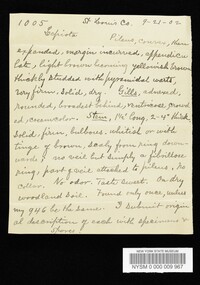 1005 St Louis Co. 9-21-02
Lepiota
Pileus, convex, then
expanded, margin incurved, appendicu
late, light brown becoming yellowish brown
thickly studded with pyramidal warts,
very firm, solid, dry. Gills, adnexed,
rounded, broadest behind, ventricose crowd
ed, cream color. Stem, 1¾ long, 2-4" thick
Solid, firm, bulbous, whitish or with
tinge of brown, scaly from ring down-
wards, no veil but simply a fibrillose
ring, part of veil attached to pileus. No
collar. No odor. Taste sweet. On dry
woodland soil. Found only once, unless
my 946 be the same. I submit origin
al descriptions of each with specimens &
spores
NEW YORK STATE MUSEUM
NYSM 0 000 009 967